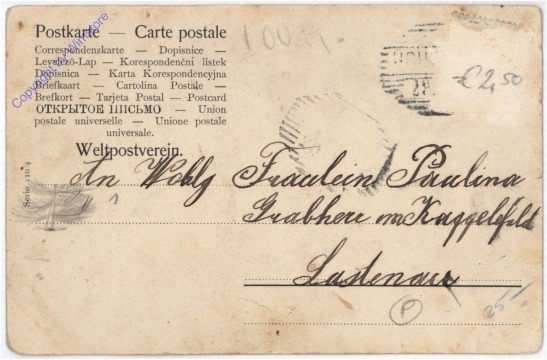 Postkarte — Carte postale
Correspondenzkarte — Dopisnice —
Levelező-Lap — Korespondenční lístek
Dopisnica — Karta Korespondencyjna
Briefkaart — Cartolina Postale —
Brefkort — Tarjeta Postal — Postcard
ОТКРЫТОЕ ПИСЬМО — Union
postale universelle — Unione postale
universale.
Weltpostverein.
€ 2,50
An Wohlg Fräulein Paulina
Grabherr
Lustenau
Serie
P
25